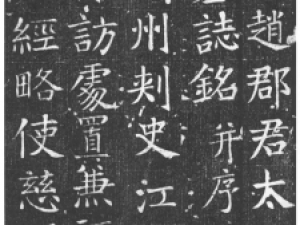 趙郡君太
誌銘并序
州刾史江
訪處置兼
經略使慈